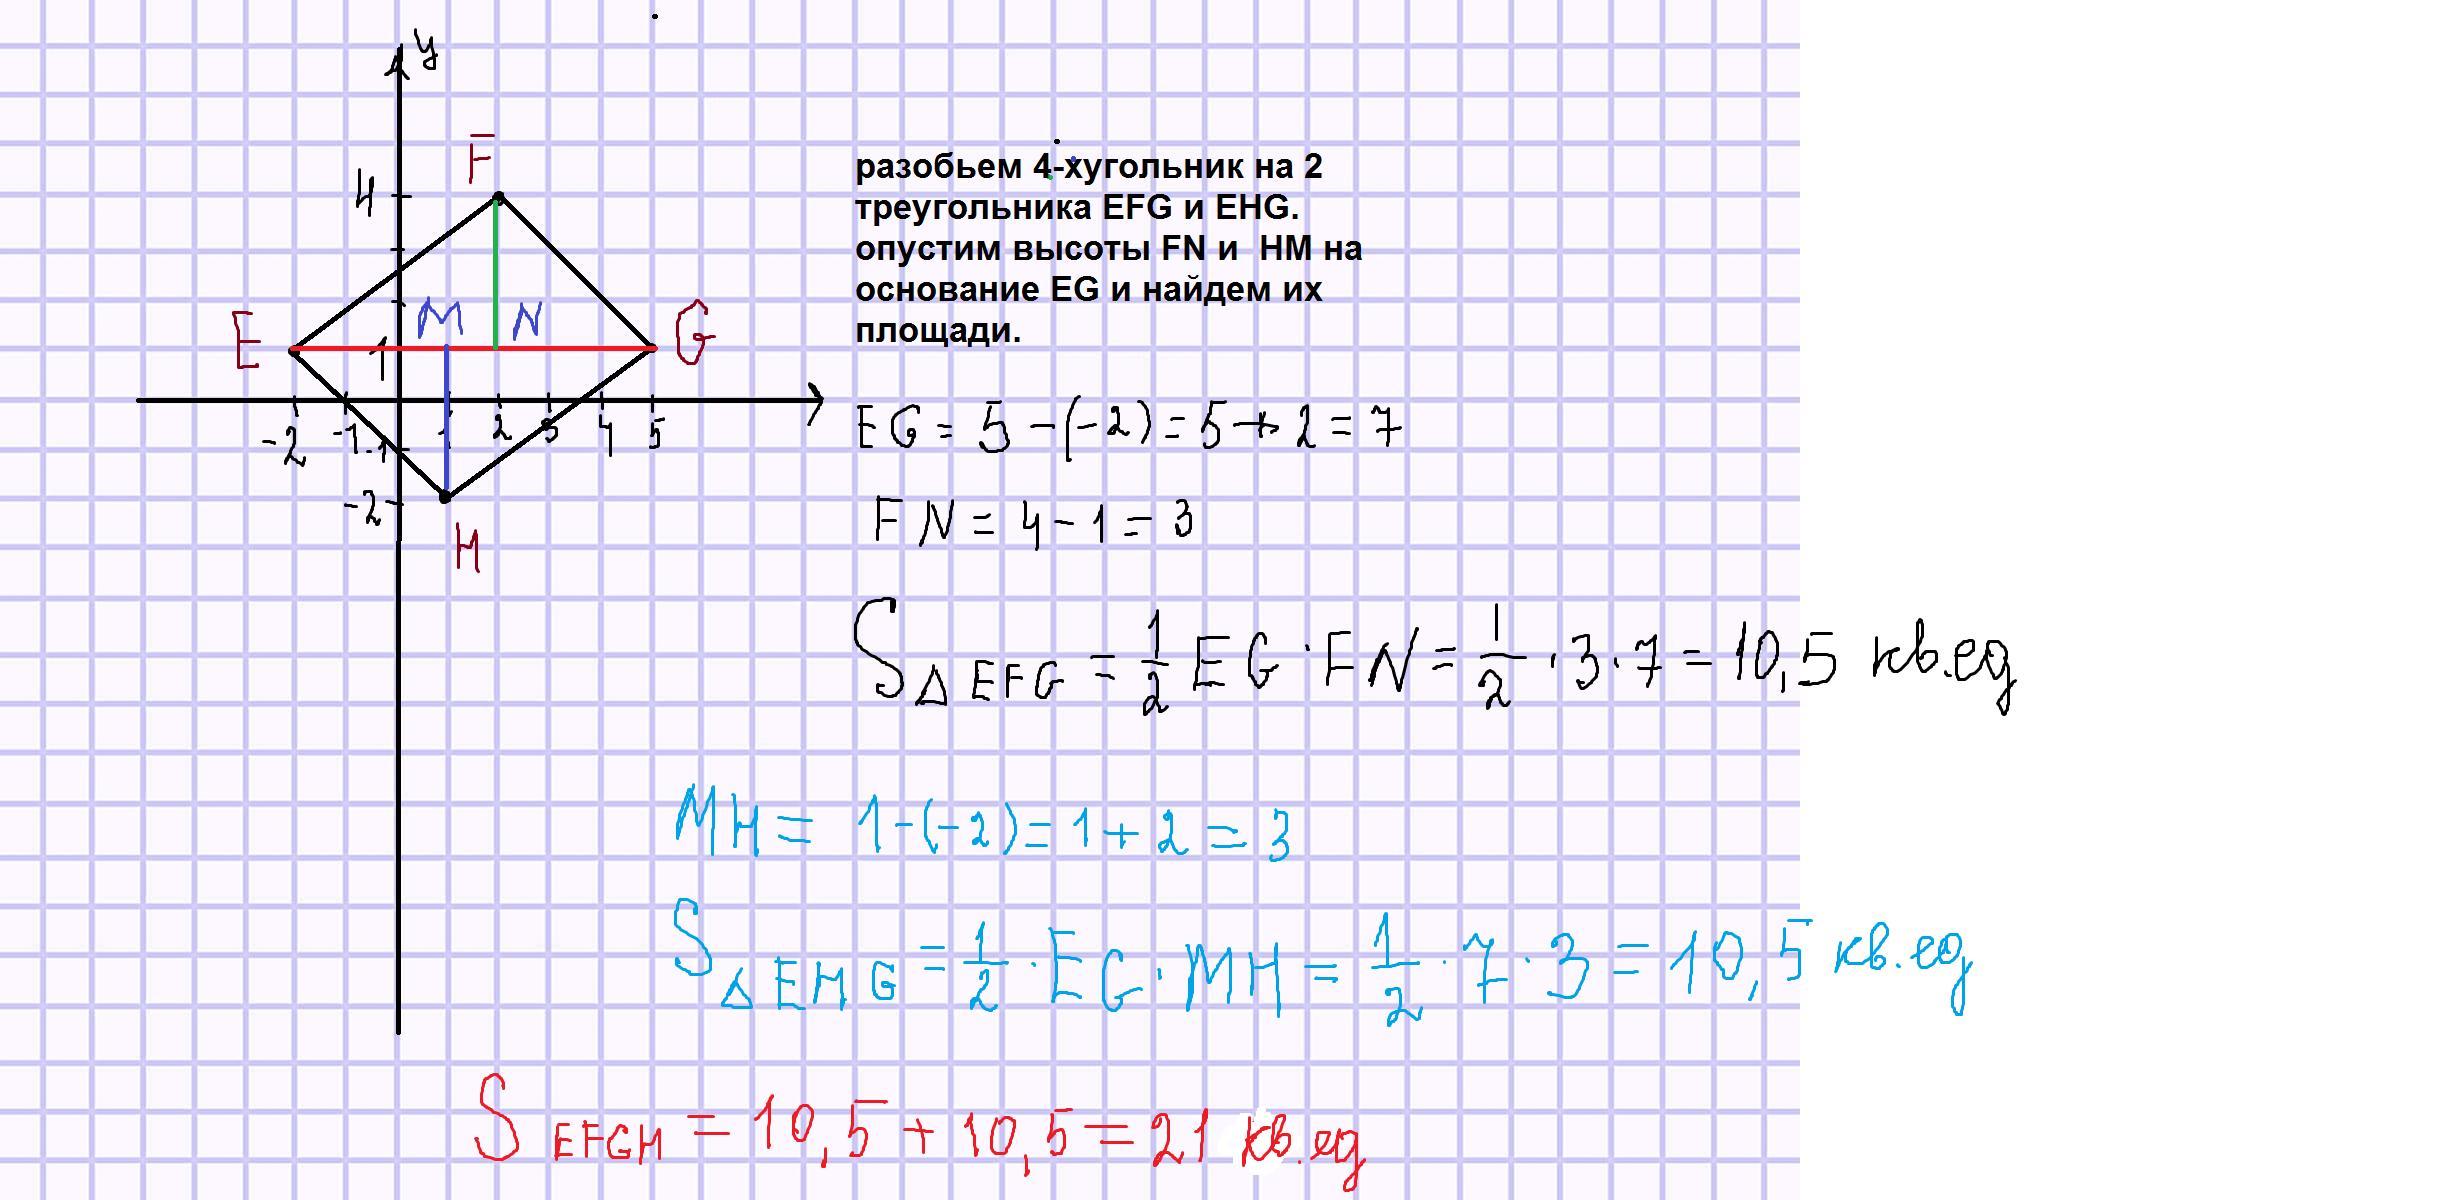 y
F
4
разобьем 4-хугольник на 2
треугольника EFG и EHG.
опустим высоты FN и HM на
основание EG и найдем их
площади.
E M N G
1
-2 -1 1 2 3 4 5
-1
-2
H
EG = 5 - (-2) = 5 + 2 = 7
FN = 4 - 1 = 3
S△EFG = 1/2 EG · FN = 1/2 · 3 · 7 = 10,5 кв.ед
MH = 1 - (-2) = 1 + 2 = 3
S△EHG = 1/2 · EG · MH = 1/2 · 7 · 3 = 10,5 кв.ед
S EFGH = 10,5 + 10,5 = 21 кв.ед